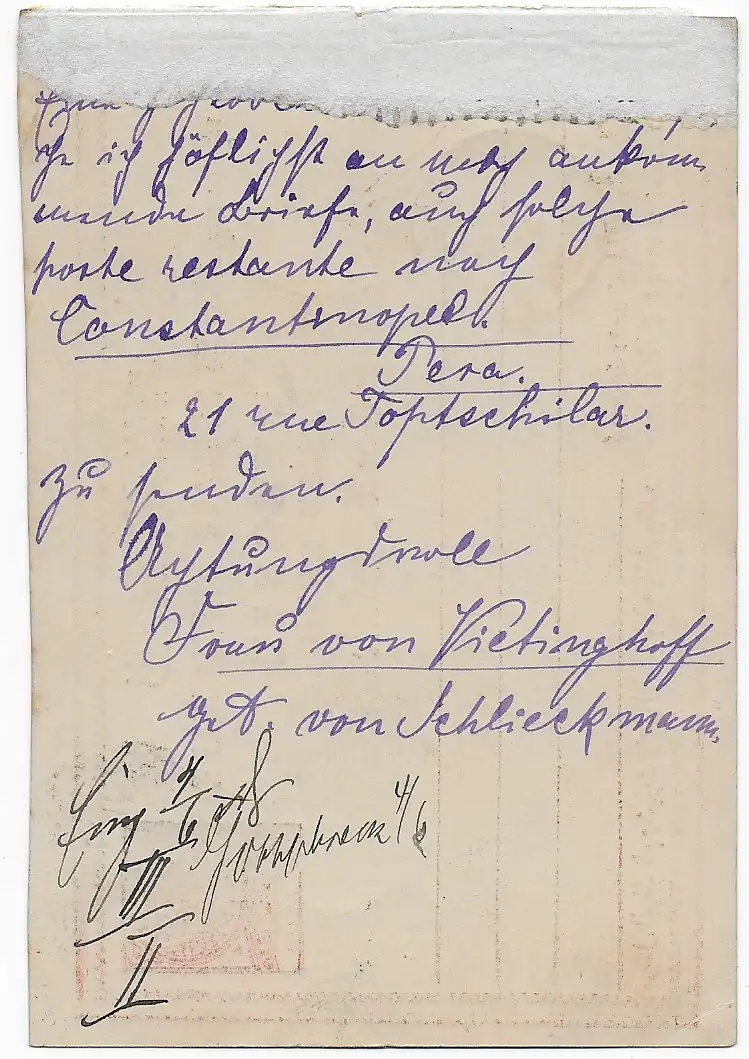 ich höflichst an mich ankom
mende Briefe, auch solche
poste restante nach
Constantinopel.
Pera.
21 rue Toptschilar.
zu senden.
Achtungsvoll
Frau von Vietinghoff
geb. von Schlieckmann.
Eing 4/6
4/6
III
II